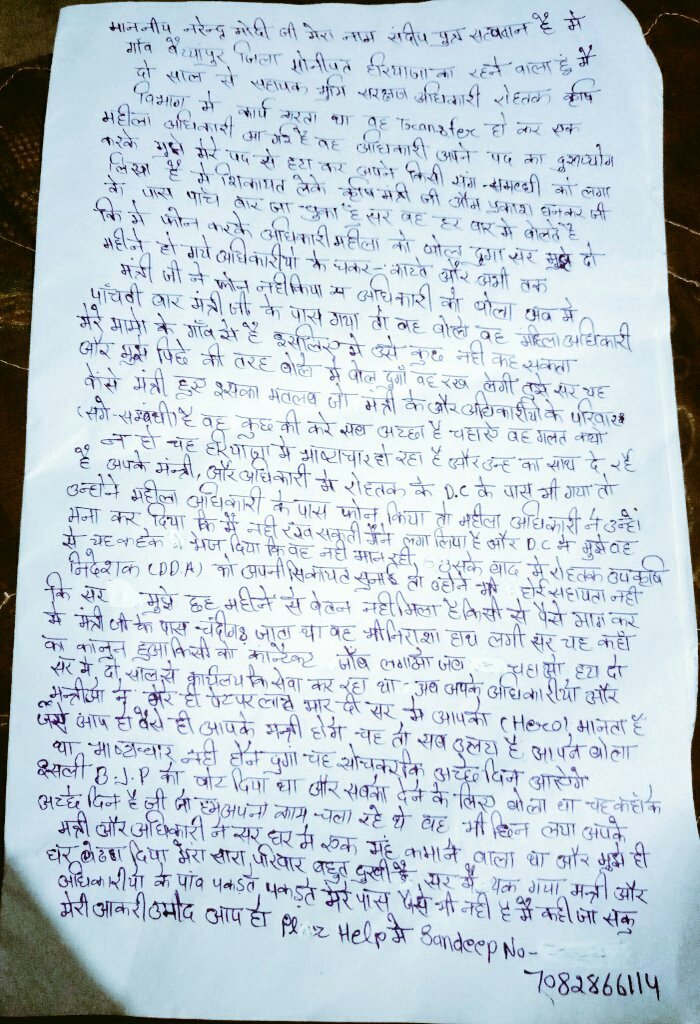 माननीय नरेन्द्र मोदी जी मेरा नाम संदीप पुत्र सत्यवान है मैं
गाँव बैंय्यापुर जिला सोनीपत हरियाणा का रहने वाला हूं मैं
दो साल से सहायक भुमि सरक्षण अधिकारी रोहतक कृषि
विभाग में कार्य करता था वह Transfer हो कर एक
महीला अधिकारी आ गई है वह अधिकारी अपने पद का दुरूपयोग
करके मुझे मेरे पद से हटा कर अपने किसी सगे-समबधी को लगा
लिया है मैं शिकायत लेके कृषि मंत्री जी ओम प्रकाश धनकर जी
के पास पाँच बार जा चुका है सर वह हर बार में बोलते है
कि मे फोन करके अधिकारी महीला को बोल दुगा सर मुझे दो
महीने हो गये अधिकारीयो के चकर-काटते और अभी तक
मंत्री जी ने फोन नही किया अधिकारी को बोला अब मे
पाँचवी बार मंत्री जी के पास गया तो वह बोले वह महिला अधिकारी
मेरे मामा के गाँव से है इसलिए मे उसे कुछ नही कह सकता
और मुझे पिछे की तरह बोले मे बोल दुगाँ वह रख लेगी तुझे सर यह
कैसे मंत्री हुए इसका मतलब जो मंत्री के और अधिकारीयो के परिवार
(सगे-सम्बधी) है वह कुछ की करे सब अच्छा है चहाए वह गलत क्यों
न हो यह हरियाणा मे भ्रष्टाचार हो रहा है और उन्ह का साथ दे रहे
है आपके मन्त्री, और अधिकारी मे रोहतक के D.C के पास भी गया तो
उन्होने महीला अधिकारी के पास फोन किया तो महीला अधिकारी ने उन्हें
मना कर दिया कि मैं नही रख सकती मैंने लगा लिया है और D.C ने मुझे वह
से यह कहके भेज दिया कि वह नही मान रही उसके बाद मे रोहतक उप कृषि
निदेशक (DDA) को अपनी सिकायत सुनाई तो उहोने भी होई सहायता नही
कि सर मुझे छह महीने से वेतन नही मिला है किसी से पैसे माग कर
मे मंत्री जी के पास चंदीगढ जाता था वह भी निराशा हाथ लगी सर यह कहाँ
का कानुन हुआ किसी को कान्टैक्ट जौब लगाओ जब चहाओ हटा दो
सर मे दो साल से कार्यालय कि सेवा कर रहा था अब आपके अधिकारीयो और
मन्त्रीओ ने मेरे ही पेट पर लात मार दी सर मे आपको (Hero) मानता है
जैसे आप हो वैसे ही आपके मन्त्री होगे यह तो सब उलटा है आपने बोला
था भ्रष्टाचार नही होने दुगा यह सोचकर कि अच्छे दिन आएगे
इसली B.J.P को वोट दिया था और सबको देने के लिए बोला था यह कहाँ के
अच्छे दिन है जी जो हम अपना काम चला रहे थे वह भी छिन लया आपके
मंत्री और अधिकारी ने सर घर मे एक मे कमाने वाला था और मुझे ही
घर बेठा दिया मेरा सारा परिवार बहुत दुखी है सर मैं थक गया मन्त्री और
अधिकारीयो के पांव पकड़ते पकड़ते मेरे पास पैसे भी नही है मैं कही जा सकु
मेरी आकरी उमीद आप हो Help मे Sandeep No-
7082866114